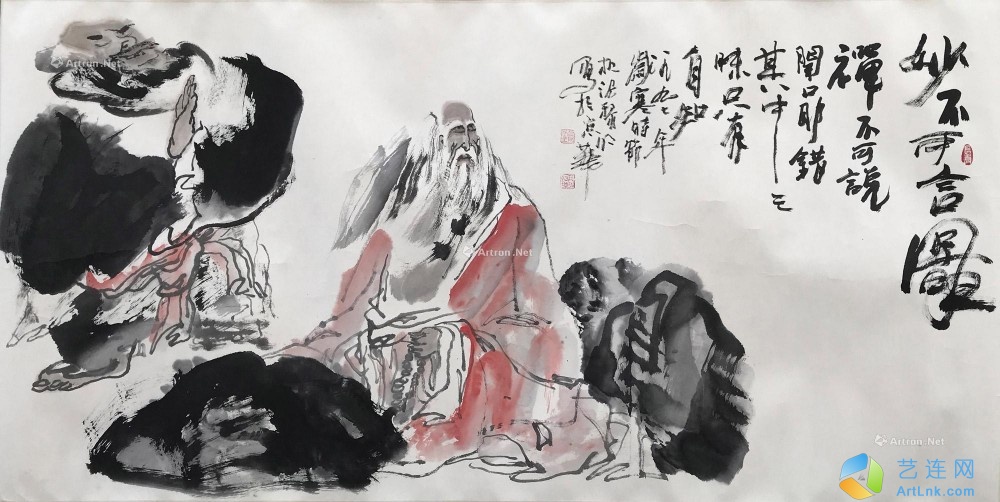 妙不可言圖
禪不可說
開口即錯
其中三
昧只有
自知
一九九七年
歲寒時節
寫於京華
Artron.Net
Artron.Net
Artron.Net
艺连网
ArtLnk.com